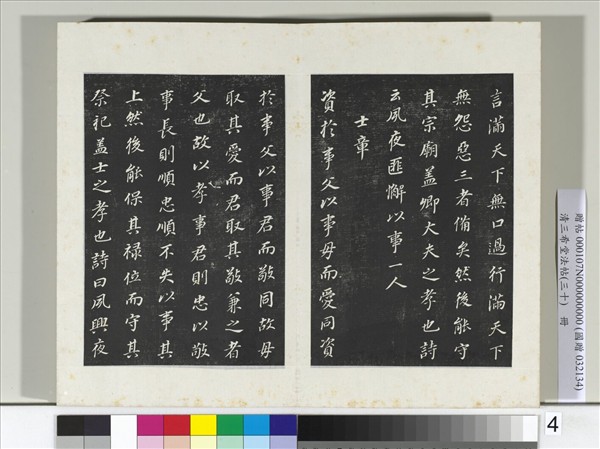 言滿天下無口過行滿天下
無怨惡三者備矣然後能守
其宗廟蓋卿大夫之孝也詩
云夙夜匪懈以事一人
士章
資於事父以事母而愛同資
於事父以事君而敬同故母
取其愛而君取其敬兼之者
父也故以孝事君則忠以敬
事長則順忠順不失以事其
上然後能保其祿位而守其
祭祀蓋士之孝也詩曰夙興夜
贈帖 000107N000000000 (國贈 032134)
清三希堂法帖(三十) 冊
4